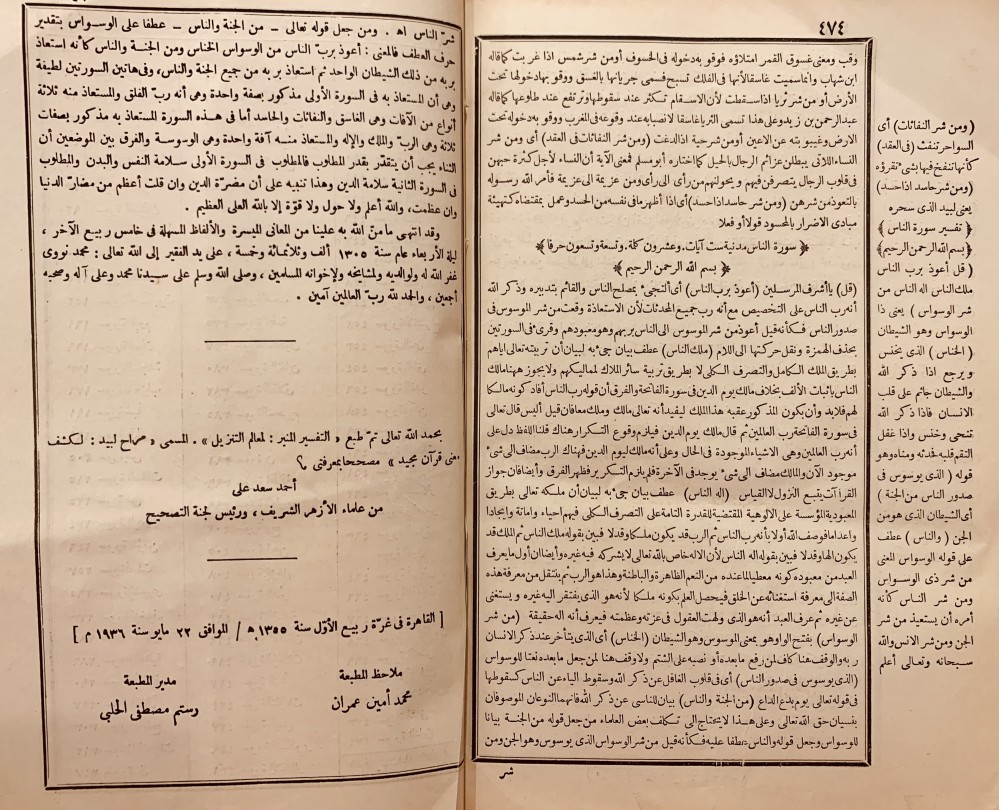 ٤٧٤
وقب ومعنى غسوق القمر امتلاؤه فوقو به دخوله فى الخسوف أو من شر شمس اذا غربت كما قاله
ابن شهاب وانما سميت غاسقا لأنها فى الفلك تسبح فسمى جريانها بالغسق ووقوبها دخولها تحت
الأرض أو من شر ثريا اذا سقطت لأن الاسقام تكثر عند سقوطها وترتفع عند طلوعها كما قاله
عبد الرحمن بن زيد وعلى هذا تسمى الثريا غاسقا لانصبابه عند وقوعه فى المغرب ووقوبه دخوله تحت
الأرض وغيبوبته عن الاعين أو من شر حية اذا لدغت (ومن شر النفاثات فى العقد) أى ومن شر
النساء اللاتى يبطلن عزائم الرجال بالحيل كما اختاره أبو مسلم فمعنى الآية أن النساء لأجل كثرة حبهن
فى قلوب الرجال يتصرفن فيهم ويحولنهم من رأى الى رأى ومن عزيمة الى عزيمة فأمر الله رسوله
بالتعوذ من شرهن (ومن شر حاسد اذا حسد) أى اذا أظهر ما فى نفسه من الحسد وعمل بمقتضاه كتهيئة
مبادى الاضرار بالمحسود قولا أو فعلا
﴿ سورة الناس مدنية ست آيات. وعشرون كلمة. وتسعة وتسعون حرفا ﴾
﴿ بسم الله الرحمن الرحيم ﴾
(قل) يا أشرف المرسلين (أعوذ برب الناس) أى ألتجىء بمصلح الناس والقائم بتدبيره وذكر الله
أنه رب الناس على التخصيص مع أنه رب جميع المحدثات لأن الاستعاذة وقعت من شر الموسوس فى
صدور الناس فكأنه قيل أعوذ من شر الموسوس الى الناس بربهم وهو معبودهم وقرئ فى السورتين
بحذف الهمزة ونقل حركتها الى اللام (ملك الناس) عطف بيان جىء به لبيان أن تربيته تعالى اياهم
بطريق الملك الكامل والتصرف الكلى لا بطريق تربية سائر الملاك لمماليكهم ولا يجوز ههنا مالك
الناس باثبات الألف بخلاف مالك يوم الدين فى سورة الفاتحة والفرق أن قوله رب الناس أفاد كونه مالكا
لهم فلا بد وأن يكون المذكور عقبه هذا الملك ليفيد أنه تعالى مالك وملك معا فان قيل أليس قال تعالى
فى سورة الفاتحة رب العالمين ثم قال مالك يوم الدين فيلزم وقوع التكرار هناك قلنا اللفظ دل على
أنه رب العالمين وهى الاشياء الموجودة فى الحال وعلى أنه مالك ليوم الدين فهناك الرب مضاف الى شىء
موجود الآن والمالك مضاف الى شىء يوجد فى الآخرة فلم يلزم التكرير فظهر الفرق وأيضا فان جواز
القراآت يتبع النزول لا القياس (اله الناس) عطف بيان جىء به لبيان أن ملكه تعالى بطريق
المعبودية المؤسسة على الالوهية المقتضية للقدرة التامة على التصرف الكلى فيهم احياء واماتة وايجادا
واعداما فوصف الله أولا بأنه رب الناس ثم الرب قد يكون ملكا وقد لا فبين بقوله ملك الناس ثم الملك قد
يكون الها وقد لا فبين بقوله اله الناس لأن الاله خاص بالله تعالى لا يشركه فيه غيره وأيضا ان أول ما يعرف
العبد من معبوده كونه معطيا لما عنده من النعم الظاهرة والباطنة وهذا هو الرب ثم ينتقل من معرفة هذه
الصفة الى معرفة استغنائه عن الخلق فيحصل العلم بكونه ملكا لأنه هو الذى يفتقر اليه غيره ويستغنى
عن غيره ثم عرف العبد أنه هو الذى ولهت العقول فى عزته وعظمته فيعرف أنه اله حقيقة (من شر
الوسواس) بفتح الواو هو بمعنى الموسوس وهو الشيطان (الخناس) أى الذى يتأخر عند ذكر الانسان
ربه والوقف هنا كاف لمن رفع ما بعده أو نصبه على الشتم ولا وقف هنا لمن جعل ما بعده نعتا للوسواس
(الذى يوسوس فى صدور الناس) أى فى قلوب الغافل عن ذكر الله وسقوط الياء عن الناس كسقوطها
فى قوله تعالى يوم يدع الداع (من الجنة والناس) بيان للناسى عن ذكر الله فانهما النوعان الموصوفان
بنسيان حق الله تعالى وعلى هذا لا يحتاج الى تكلف بعض العلماء من جعل قوله من الجنة بيانا
للوسواس وجعل قوله والناس عطفا عليه فكأنه قيل من شر الوسواس الذى يوسوس وهو الجن ومن
شر
(ومن شر النفاثات) أى
السواحر تنفث (فى العقد)
كأنها تنفخ فيها بشىء تقرؤه
(ومن شر حاسد اذا حسد)
يعنى لبيد الذى سحره
﴿ تفسير سورة الناس ﴾
﴿بسم الله الرحمن الرحيم﴾
(قل أعوذ برب الناس
ملك الناس اله الناس من
شر الوسواس) يعنى ذا
الوسواس وهو الشيطان
(الخناس) الذى يخنس
ويرجع اذا ذكر الله
والشيطان جاثم على قلب
الانسان فاذا ذكر الله
تنحى وخنس واذا غفل
التقم قلبه فحدثه ومناه وهو
قوله (الذى يوسوس فى
صدور الناس من الجنة)
أى الشيطان الذى هو من
الجن (والناس) عطف
على قوله الوسواس المعنى
من شر ذى الوسواس
ومن شر الناس كأنه
أمره أن يستعيذ من شر
الجن ومن شر الانس والله
سبحانه وتعالى أعلم
شرّ الناس اه . ومن جعل قوله تعالى – من الجنة والناس – عطفا على الوسواس بتقدير
حرف العطف فالمعنى : أعوذ بربّ الناس من الوسواس الخناس ومن الجنة والناس كأنه استعاذ
بربه من ذلك الشيطان الواحد ثم استعاذ بربه من جميع الجنة والناس، وفى هاتين السورتين لطيفة
وهى أن المستعاذ به فى السورة الأولى مذكور بصفة واحدة وهى أنه ربّ الفلق والمستعاذ منه ثلاثة
أنواع من الآفات وهى الغاسق والنفاثات والحاسد أما فى هذه السورة المستعاذ به مذكور بصفات
ثلاثة وهى الربّ والملك والإله والمستعاذ منه آفة واحدة وهى الوسوسة والفرق بين الموضعين أن
الثناء يجب أن يتقدّر بقدر المطلوب فالمطلوب فى السورة الأولى سلامة النفس والبدن والمطلوب
فى السورة الثانية سلامة الدين وهذا تنبيه على أن مضرّة الدين وان قلت أعظم من مضارّ الدنيا
وان عظمت، والله أعلم ولا حول ولا قوّة إلا بالله العلى العظيم .
وقد انتهى ما منّ الله به علينا من المعانى الميسرة والألفاظ المسهلة فى خامس ربيع الآخر ،
ليلة الأربعاء عام سنة ١٣٠٥ ألف وثلاثمائة وخمسة ، على يد الفقير إلى الله تعالى : محمد نووى
غفر الله له ولوالديه ولمشايخه ولإخوانه المسلمين ، وصلى الله وسلم على سيدنا محمد وعلى آله وصحبه
أجمعين ، والحمد لله ربّ العالمين آمين .
بحمد الله تعالى تمّ طبع « التفسير المنير : لمعالم التنزيل » . المسمى « مراح لبيد : لكشف
معنى قرآن مجيد » مصححا بمعرفتى ؟
أحمد سعد على
من علماء الأزهر الشريف ، ورئيس لجنة التصحيح
[ القاهرة فى غرّة ربيع الأوّل سنة ١٣٥٥ ه / الموافق ٢٢ مايو سنة ١٩٣٦ م ]
ملاحظ المطبعة
محمد أمين عمران
مدير المطبعة
رستم مصطفى الحلبى